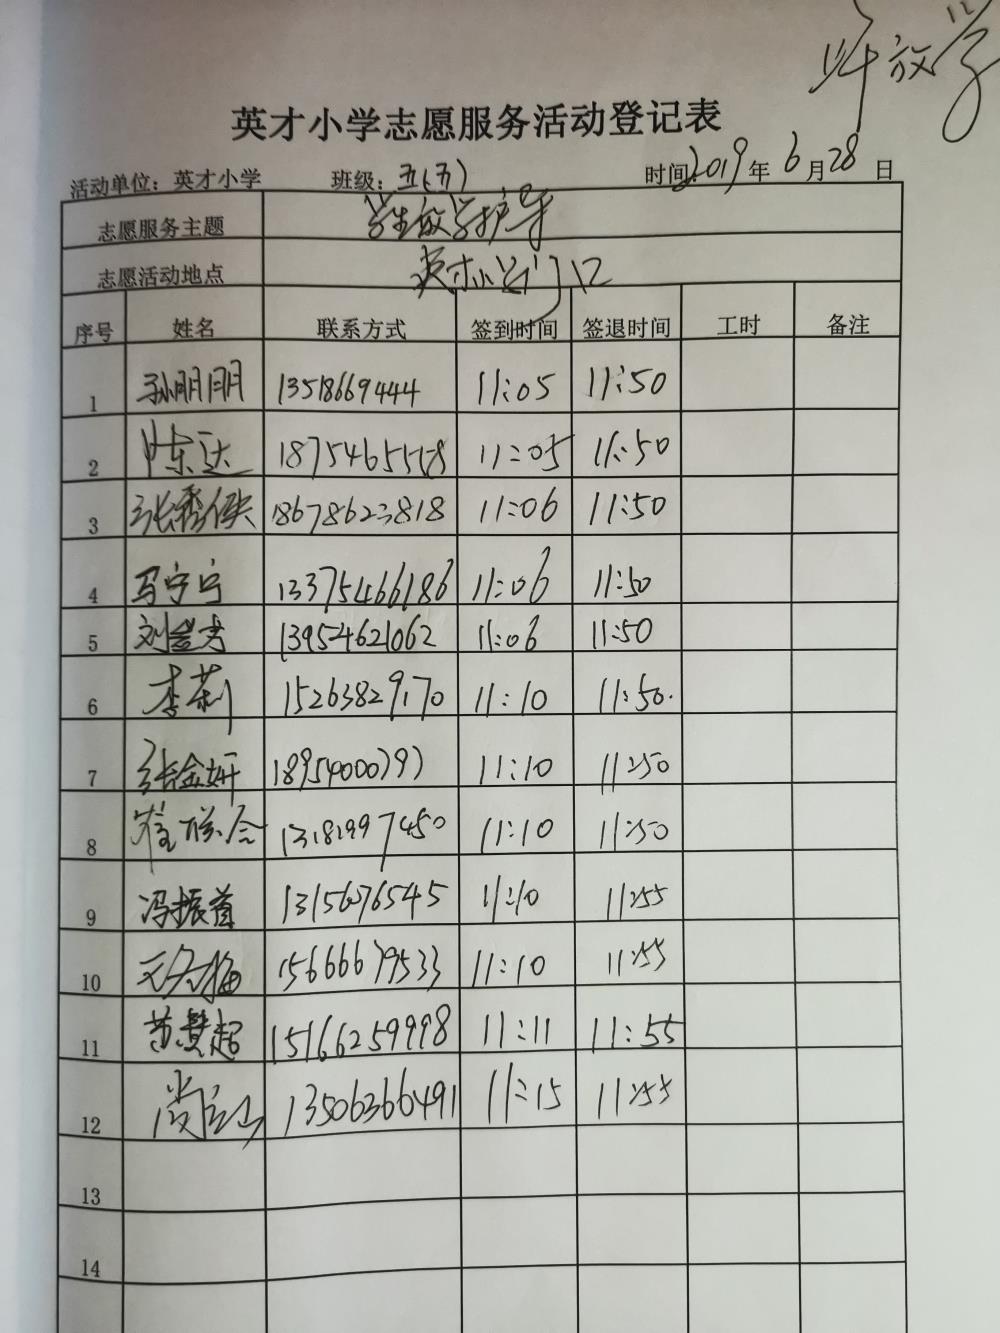 放学
英才小学志愿服务活动登记表
活动单位：英才小学 班级：五（五） 时间：2019年6月28日
志愿服务主题 学生放学护导
志愿活动地点 英才小学门口
序号 姓名 联系方式 签到时间 签退时间 工时 备注
1 孙明明 13518669444 11:05 11:50
2 陈达 11:05 11:50
3 张秀侠 18678623818 11:06 11:50
4 马宁宁 13375466186 11:06 11:50
5 13954621062 11:06 11:50
6 李莉 15263829170 11:10 11:50.
7 张金妍 18954000797 11:10 11:50
8 崔联合 13181997450 11:10 11:50
9 冯振首 13156076545 11:10 11:55
10 15666679533 11:10 11:55
11 苗慧超 15166259998 11:11 11:55
12 尚 13506366491 11:15 11:55
13
14